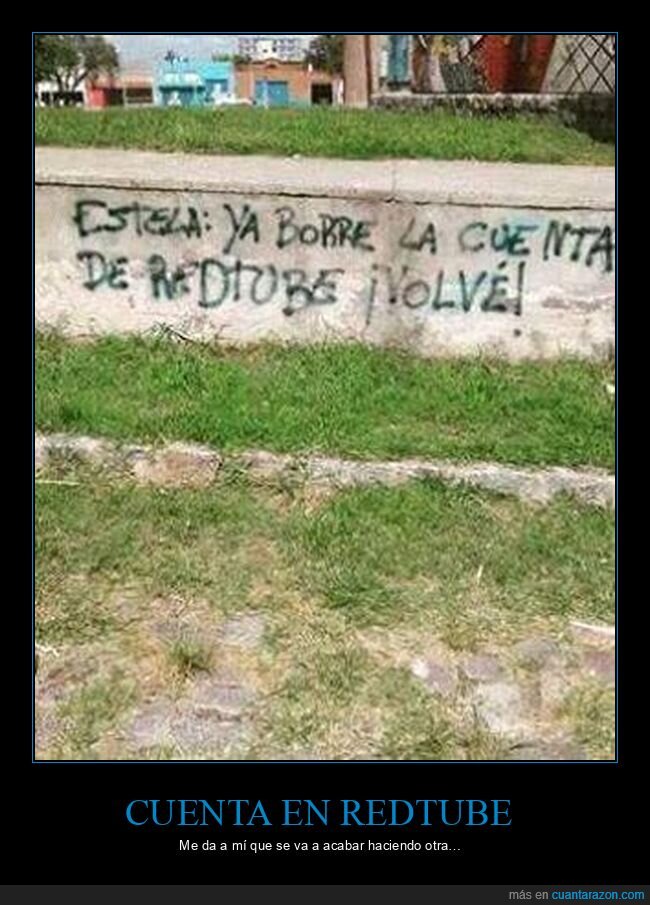 ESTELA: YA BORRE LA CUENTA
DE REDTUBE ¡VOLVÉ!
CUENTA EN REDTUBE
Me da a mí que se va a acabar haciendo otra...
más en cuantarazon.com